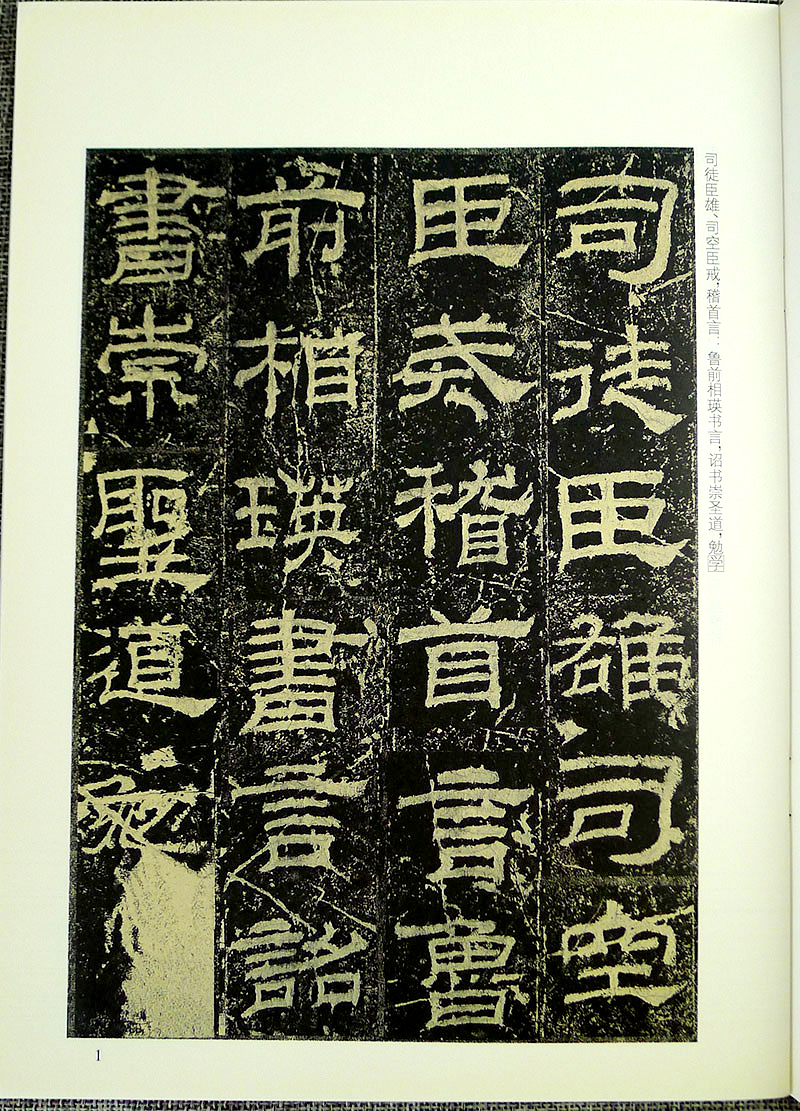 司徒臣雄司空
臣戒稽首言魯
前相瑛書言詔
書崇聖道勉
司徒臣雄、司空臣戒,稽首言:鲁前相瑛书言,诏书崇圣道,勉学
1